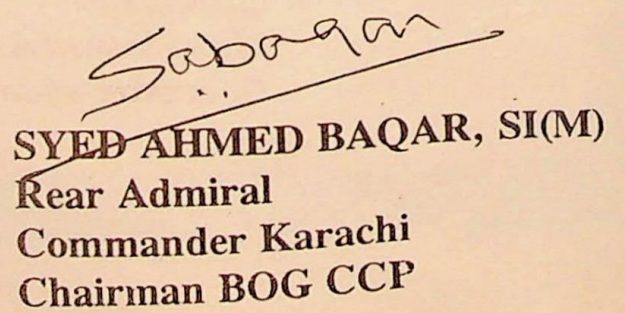 Sabaqar
SYED AHMED BAQAR, SI(M)
Rear Admiral
Commander Karachi
Chairman BOG CCP